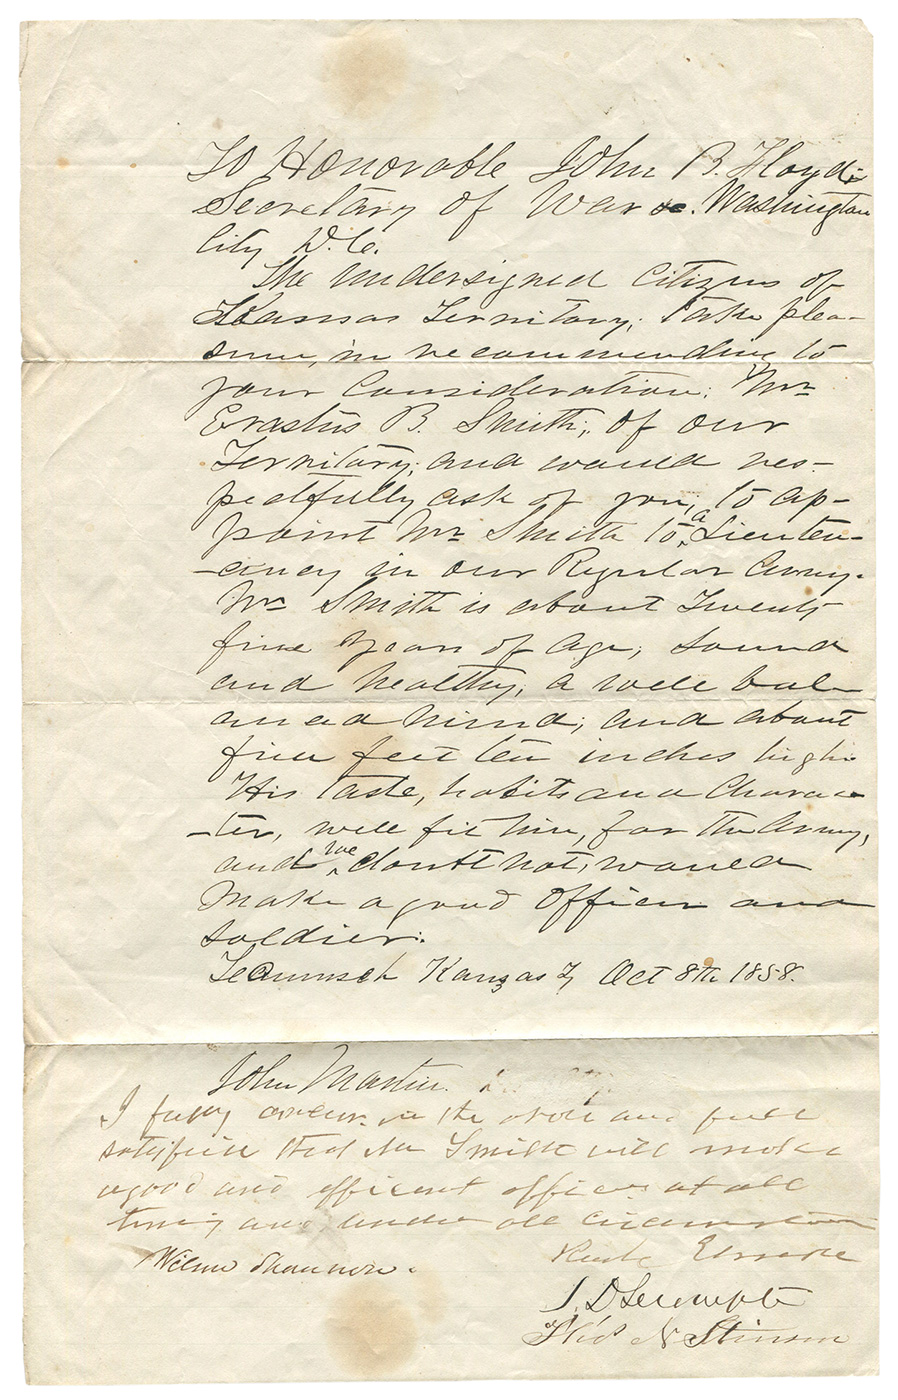 To Honorable John B. Floyd;
Secretary of War &c. Washington
City D.C.
The undersigned Citizens of
Kansas Territory, take plea-
sure, in recommending to
your Consideration; Mr
Erastus B. Smith, of our
Territory; and would res-
pectfully ask of you, to ap-
point Mr Smith to a Lieuten-
-ancy in our Regular Army.
Mr Smith is about Twenty
five years of age, sound
and healthy; a well bal-
anced mind; and about
five feet ten inches high.
His taste, habits and Charac-
-ter, well fit him, for the Army,
and we doubt not, would
make a good officer and
soldier.
Tecumseh Kansas Ty Oct 8th 1858.
John Martin.
I fully concur in the above and feel
satisfied that Mr Smith will make
a good and efficient officer at all
times and under all circumstances
Rush Elmore
Wilson Shannon.
J. D
Thos N Stinson